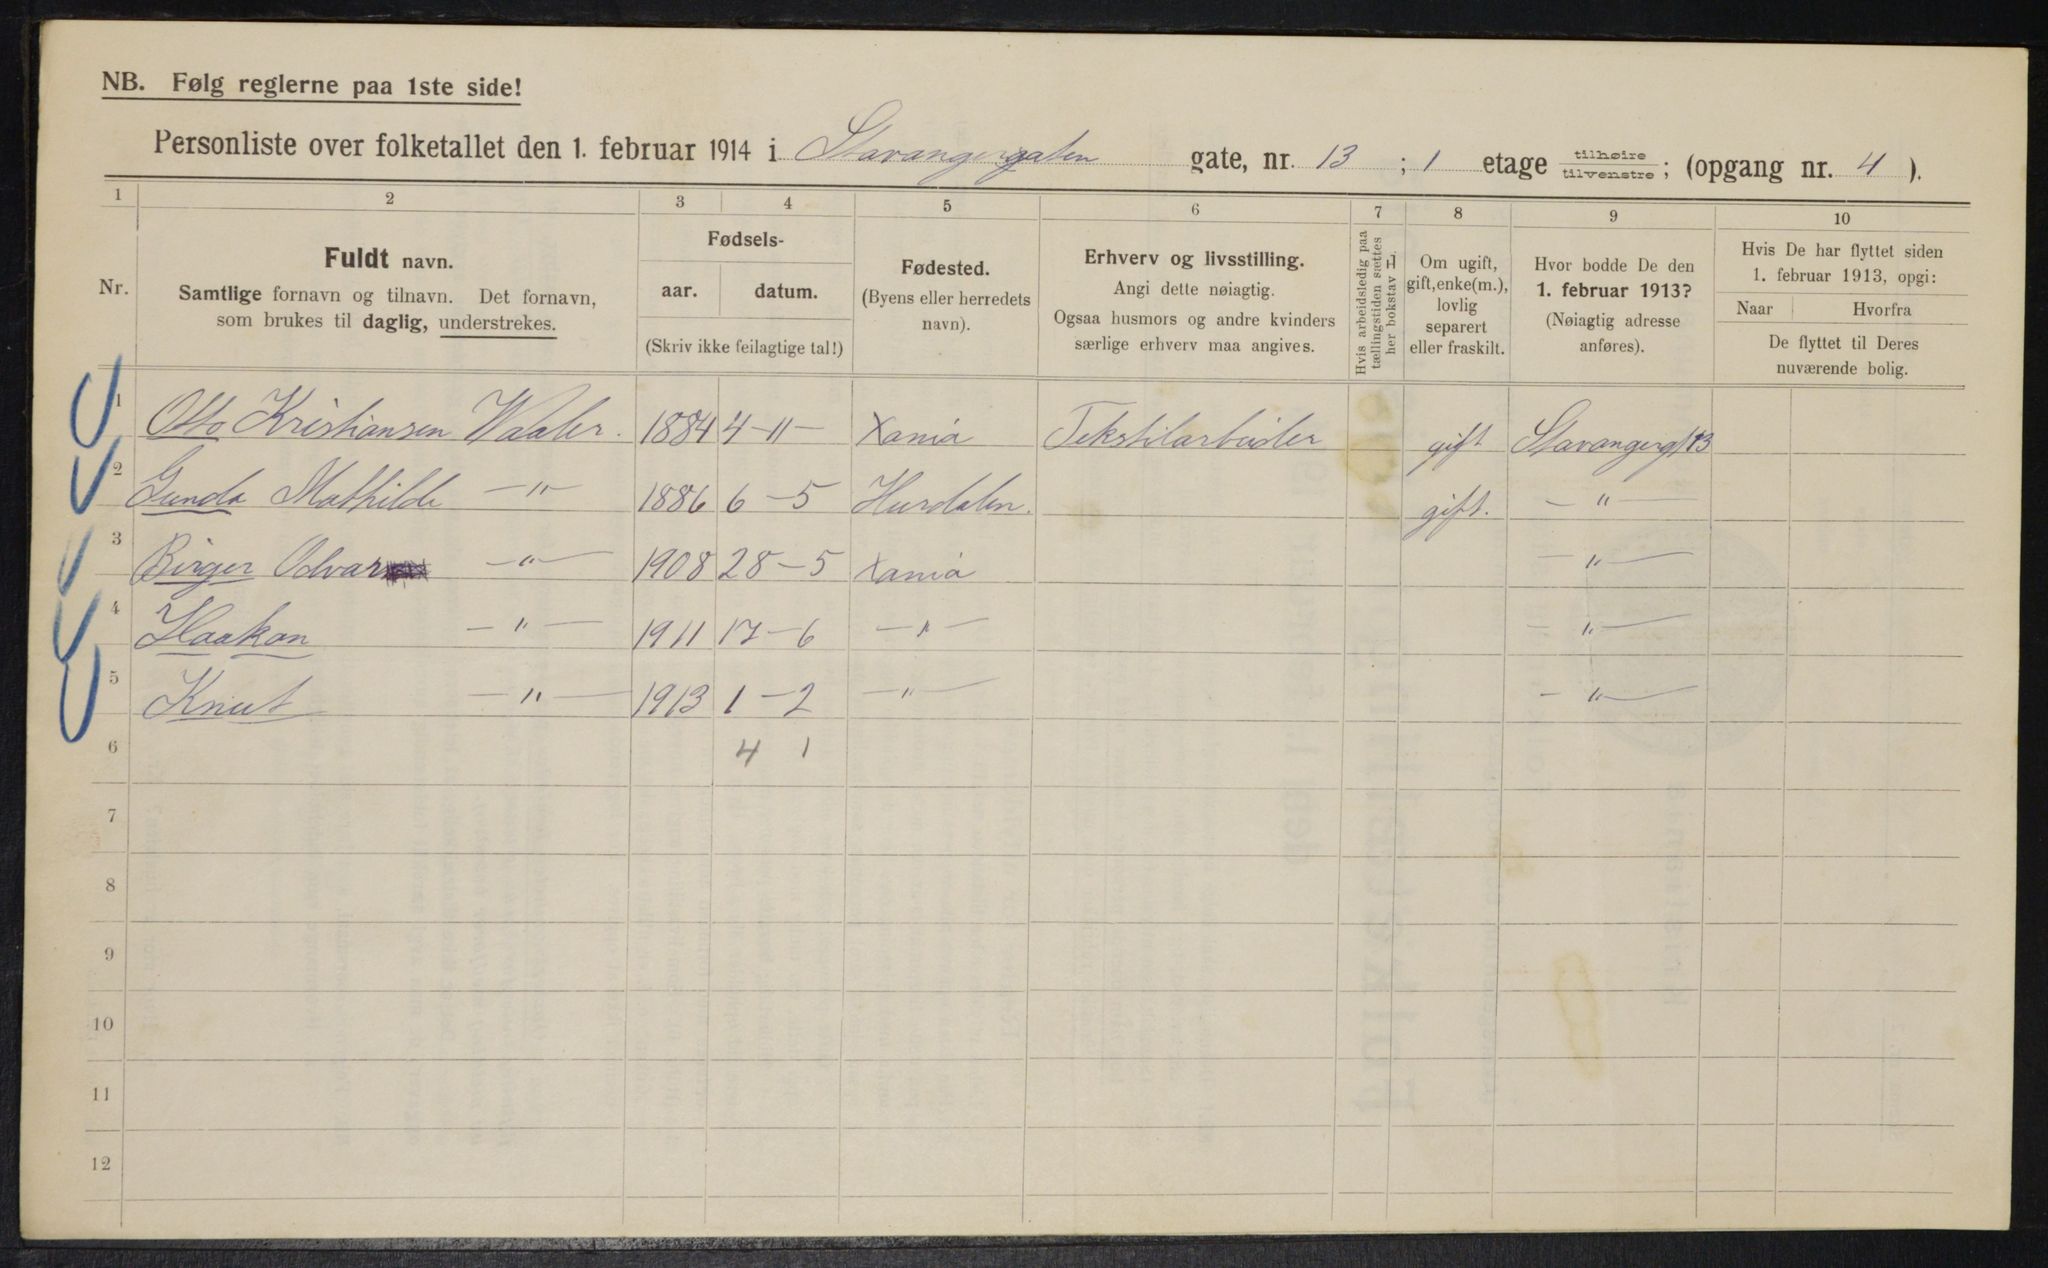 NB. Følg reglerne paa 1ste side!
Personliste over folketallet den 1. februar 1914 i Stavangergaten gate, nr. 13 ; 1 etage tilhøire tilvenstre ; (opgang nr. 4 ).
1 2 3 4 5 6 7 8 9 10
Nr.
Fuldt navn.
Samtlige fornavn og tilnavn. Det fornavn,
som brukes til daglig, understrekes.
Fødsels-
aar. datum.
(Skriv ikke feilagtige tal!)
Fødested.
(Byens eller herredets
navn).
Erhverv og livsstilling.
Angi dette nøiagtig.
Ogsaa husmors og andre kvinders
særlige erhverv maa angives.
Hvis arbeidsledig paa
tællingstiden sættes
her bokstav L.
Om ugift,
gift, enke(m.),
lovlig
separert
eller fraskilt.
Hvor bodde De den
1. februar 1913?
(Nøiagtig adresse
anføres).
Hvis De har flyttet siden
1. februar 1913, opgi:
Naar Hvorfra
De flyttet til Deres
nuværende bolig.
1 Otto Kristiansen Waaler. 1884 4-11- Xania Tekstilarbeider gift Stavangergt 13
2 Gunda Mathilde -"- 1886 6-5 Hurdalen. gift. -"-
3 Birger Odvar -"- 1908 28-5 Xania -"-
4 Haakon -"- 1911 17-6 -"- -"-
5 Knut -"- 1913 1-2 -"- -"-
6 4 1
7
8
9
10
11
12